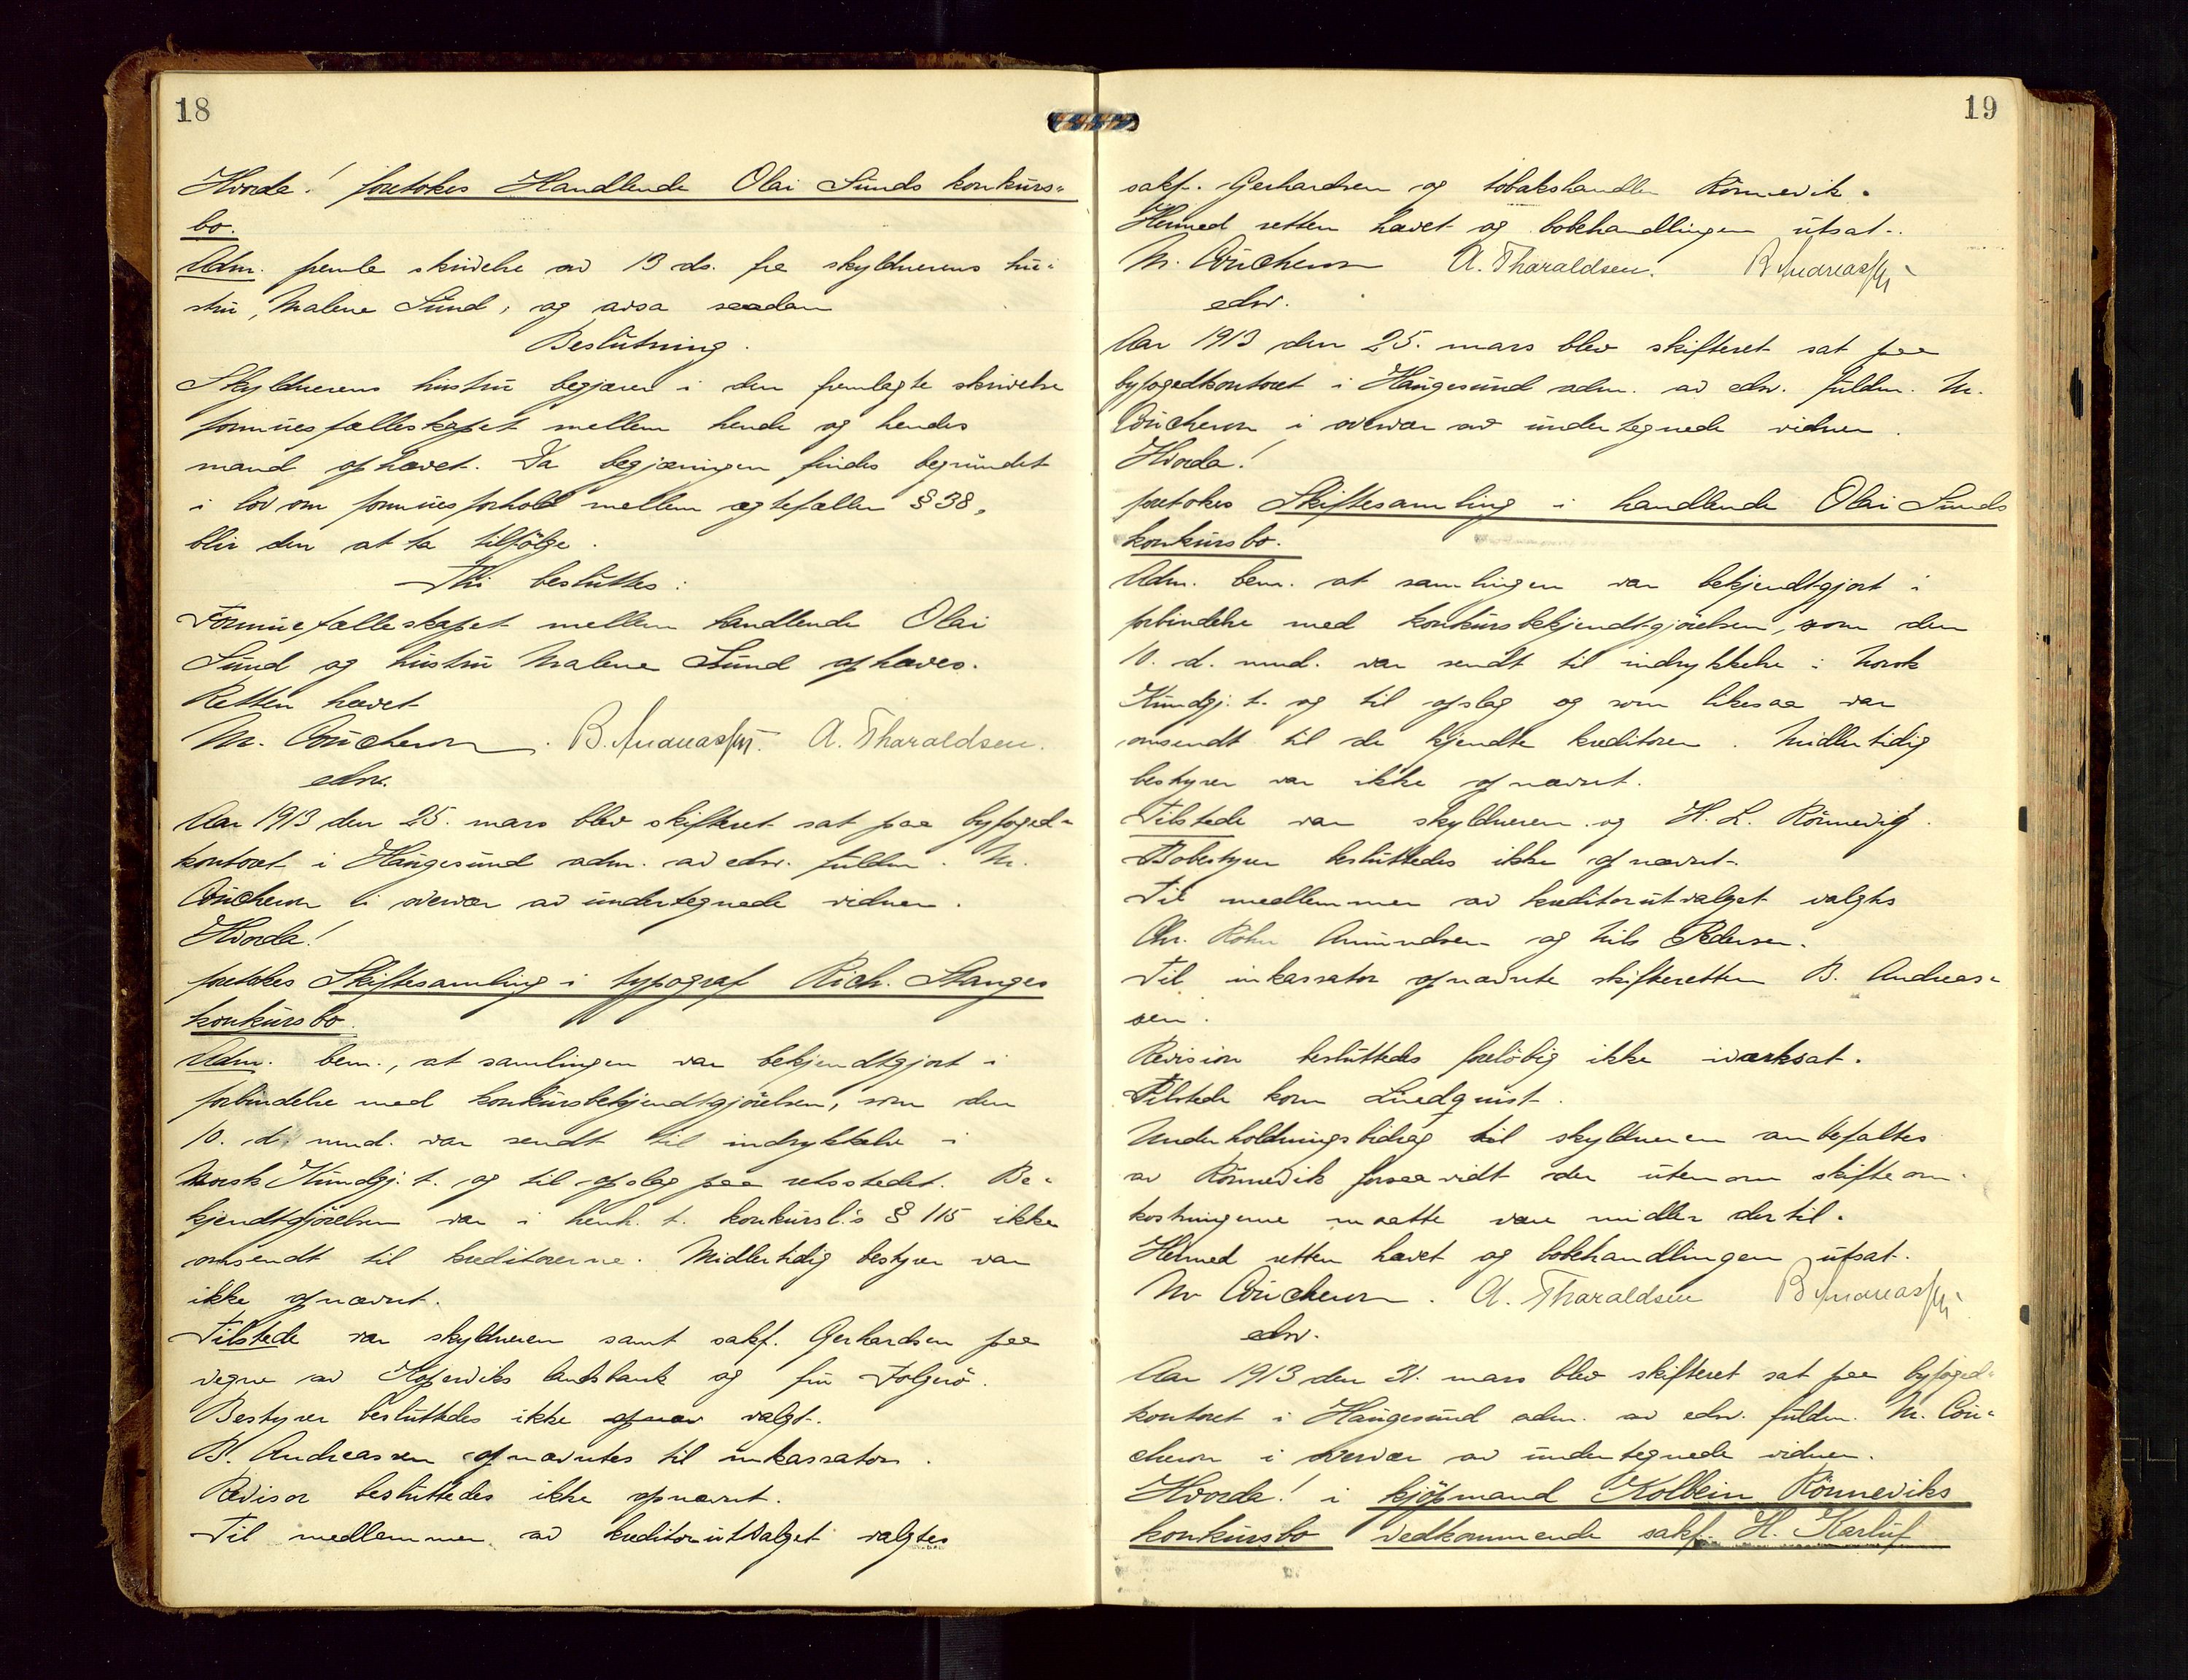 18
Hvorda! foretokes Handlende Olai Sunds konkurs-
bo.
Adm. fremla skrivelse av 13 ds. fra skyldnerens hu-
stru, Malene Sund, og avsa saadan
Beslutning.
Skyldnerens hustru begjærer i den fremlagte skrivelse
formuesfælleskapet mellem hende og hendes
mand ophævet. Da begjæringen findes begrundet
i lov om formuesforhold mellem ægtefæller § 38,
blir den at ta tilfölge.
Thi besluttes:
Formuefælleskapet mellem handlende Olai
Sund og hustru Malene Sund ophæves.
Retten hævet
M. Coucheron. B. Andreassen. A. Tharaldsen.
edsv.
Aar 1913 den 25. mars blev skifteret sat paa byfoged-
kontoret i Haugesund adm. av edsv. fuldm. M.
Coucheron i overvær av undertegnede vidner.
Hvorda!
foretokes Skiftesamling i typograf Rich. Stanges
konkursbo.
Adm. bem., at samlingen var bekjendtgjort i
forbindelse med konkursbekjendtgjörelsen, som den
10. d. mnd. var sendt til indrykkelse i
Norsk Kundgj. t. og til opslag paa retsstedet. Be-
kjendtgjörelsen var i henh. t. konkursl.s § 115 ikke
omsendt til kreditorerne. Midlertidig bestyrer var
ikke opnævnt.
Tilstede var skyldneren samt sakf. Gerhardsen paa
vegne av Kopervíks landsbank og fru Folgerö.
Bestyrer besluttedes ikke opnæv valgt.
B. Andreassen opnævntes til inkassator.
Revisor besluttedes ikke opnævnt.
Til medlemmer av kreditorutvalget valgtes
19
sakf. Gerhardsen og tobakshandler Rönnevik.
Hermed retten hævet og bobehandlingen utsat.
M. Coucheron A. Tharaldsen. B Andreassen
edsv.
Aar 1913 den 25. mars blev skifteret sat paa
byfogedkontoret i Haugesund adm. av edsv. fuldm. M.
Coucheron i overvær av undertegnede vidner.
Hvorda!
foretokes Skiftesamling i handlende Olai Sunds
konkursbo.
Adm. bem. at samlingen var bekjendtgjort i
forbindelse med konkursbekjendtgjörelsen, som den
10. d. mnd. var sendt til indrykkelse i Norsk
Kundgj. t. og til opslag og som likesaa var
omsendt til de kjendte kreditorer. Midlertidig
bestyrer var ikke opnævnt.
Tilstede var skyldneren og H. L. Rönnevig.
Bobestyrer besluttedes ikke opnævnt.
Til medlemmer av kreditorutvalget valgtes
Chr. Amundsen og Nils Pedersen.
Til inkassator opnævnte skifteretten B. Andreas-
sen.
Revision besluttedes forelöbig ikke iverksat.
Tilstede kom Lindquist.
Underholdningsbidrag til skyldneren anbefaltes
av Rönnevik forsaavidt der utenom skifteom-
kostningerne maatte være midler dertil.
Hermed retten hævet og bobehandlingen utsat.
M. Coucheron. A. Tharaldsen B Andreassen
edsv.
Aar 1913 den 31. mars blev skifteret sat paa byfoged-
kontoret i Haugesund adm. av edsv. fuldm. M. Cou-
cheron i overvær av undertegnede vidner.
Hvorda! i kjöpmand Kolbein Rönneviks
konkursbo vedkommende sakf. H. Karluf